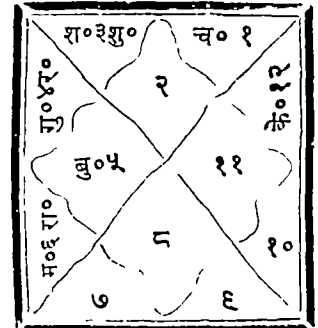 श०३शु०
च० १
२
गु०४र०
के०१२
बु०५
११
म०६रा०
८
१०
७
९